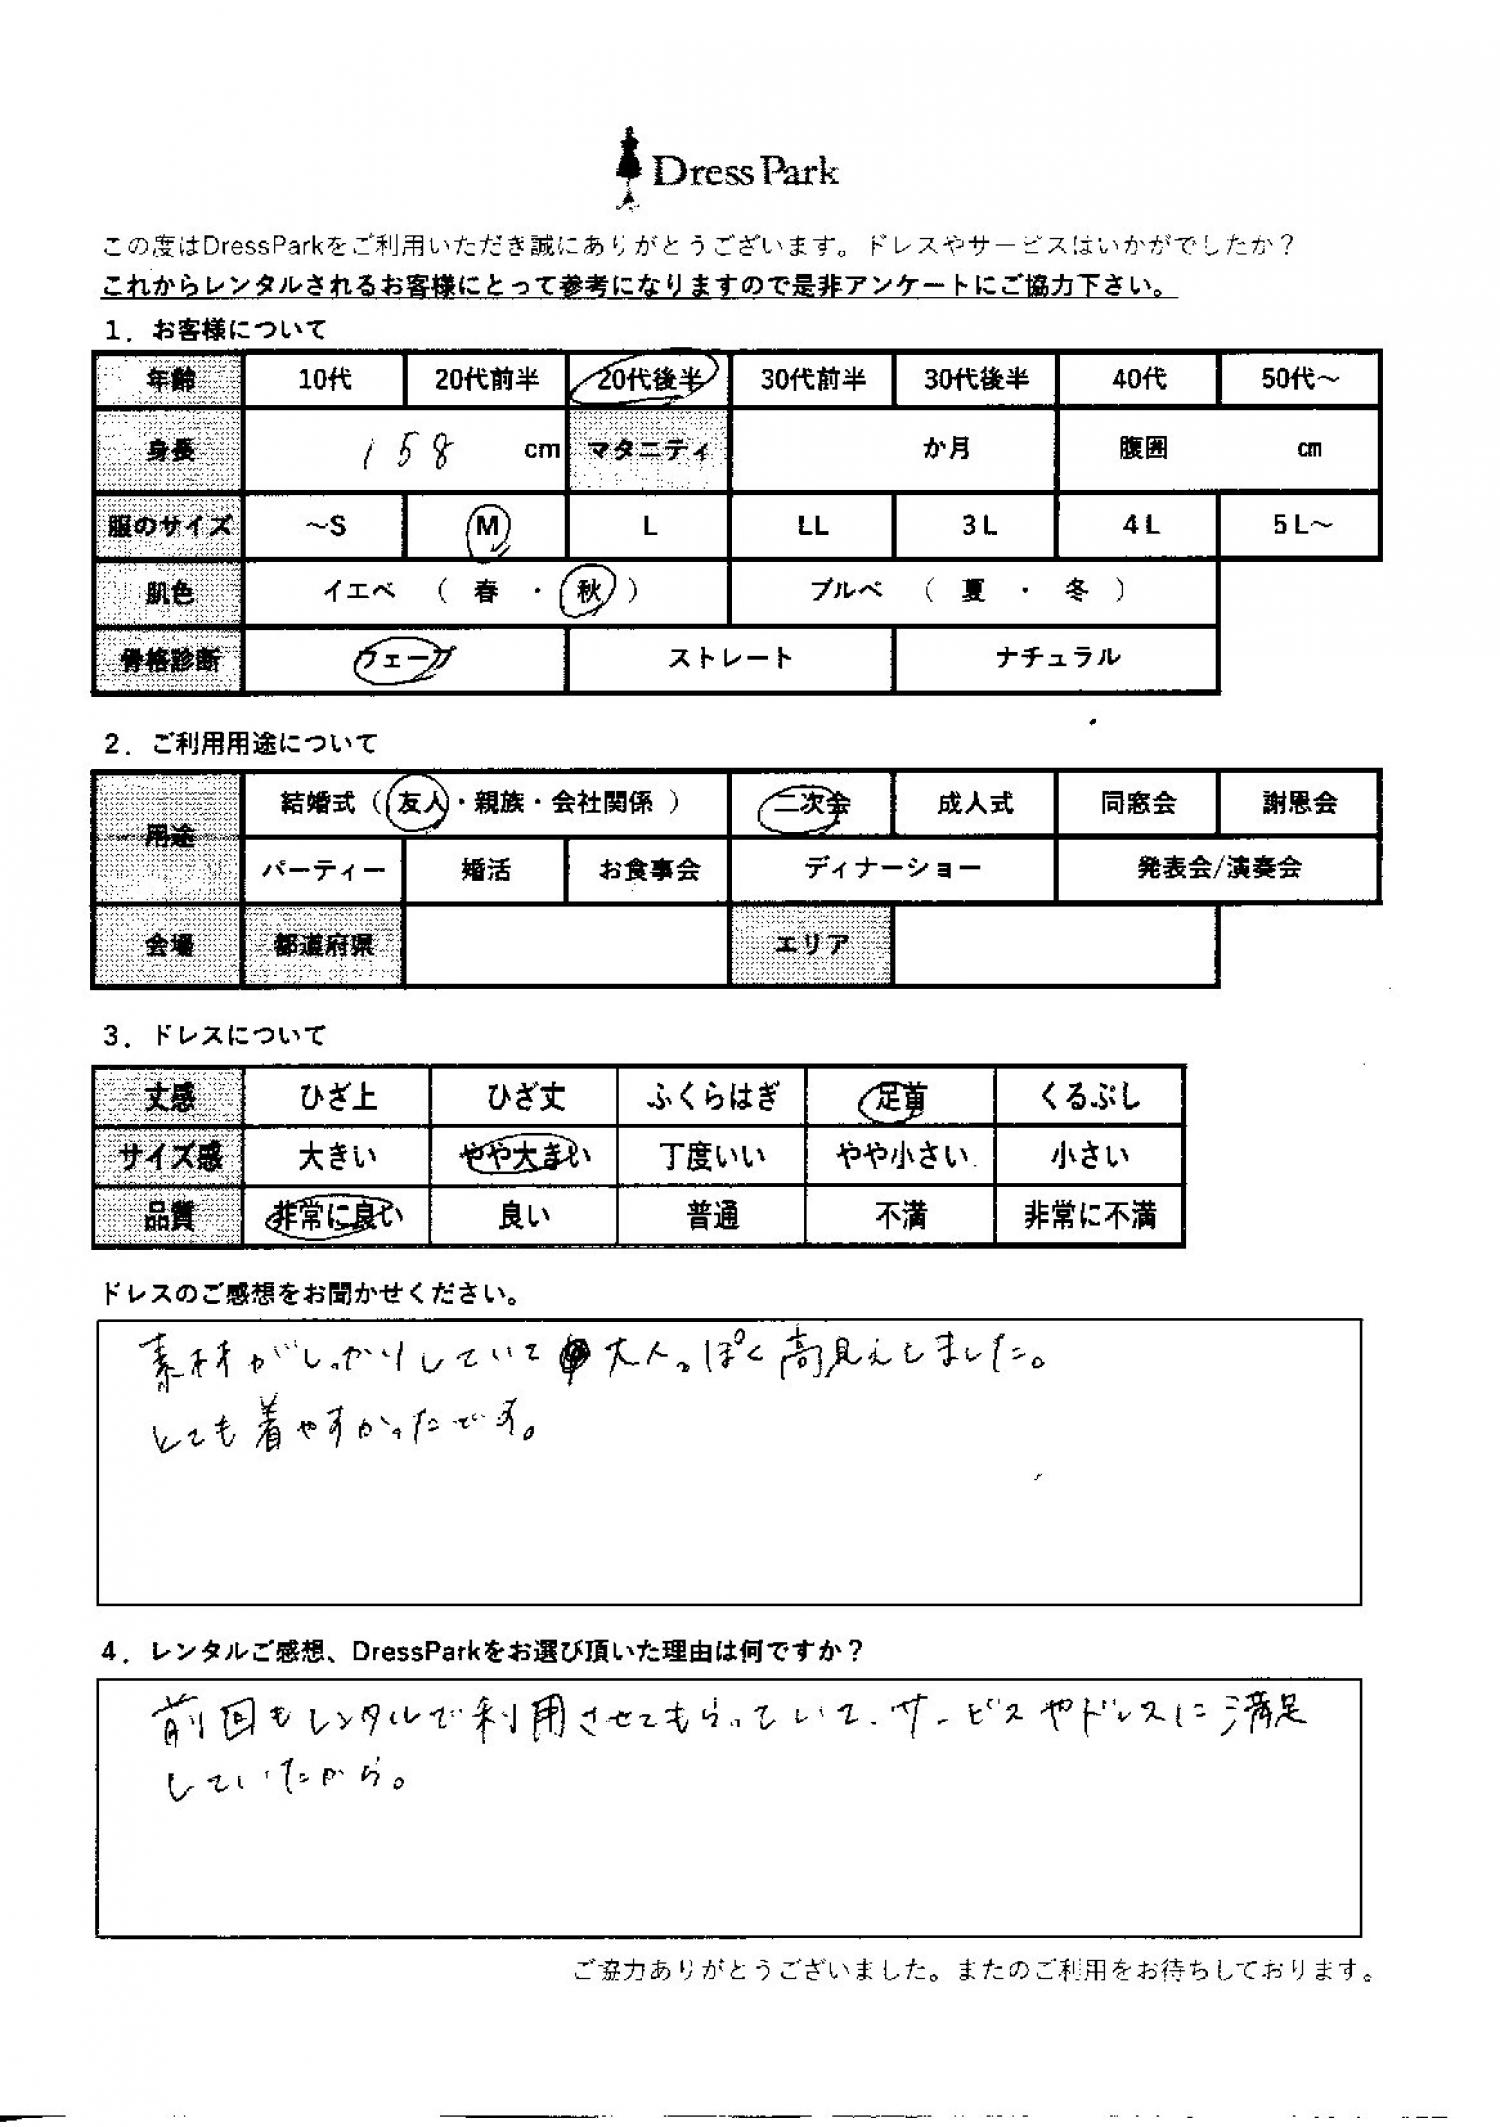 DressPark
この度はDressParkをご利用いただき誠にありがとうございます。ドレスやサービスはいかがでしたか？
これからレンタルされるお客様にとって参考になりますので是非アンケートにご協力下さい。
1．お客様について
年齢 10代 20代前半 20代後半 30代前半 30代後半 40代 50代～
身長 158 cm マタニティ か月 腹囲 ㎝
服のサイズ ～S M L LL 3L 4L 5L～
肌色 イエベ （ 春 ・ 秋 ） ブルベ （ 夏 ・ 冬 ）
骨格診断 ウェーブ ストレート ナチュラル
2．ご利用用途について
用途 結婚式（ 友人・親族・会社関係 ） 二次会 成人式 同窓会 謝恩会
パーティー 婚活 お食事会 ディナーショー 発表会/演奏会
会場 都道府県 エリア
3．ドレスについて
丈感 ひざ上 ひざ丈 ふくらはぎ 足首 くるぶし
サイズ感 大きい やや大きい 丁度いい やや小さい 小さい
品質 非常に良い 良い 普通 不満 非常に不満
ドレスのご感想をお聞かせください。
素材がしっかりしていて 大人っぽく高見えしました。
とても着やすかったです。
4．レンタルご感想、DressParkをお選び頂いた理由は何ですか？
前回もレンタルで利用させてもらっていて、サービスやドレスに満足
していたから。
ご協力ありがとうございました。またのご利用をお待ちしております。